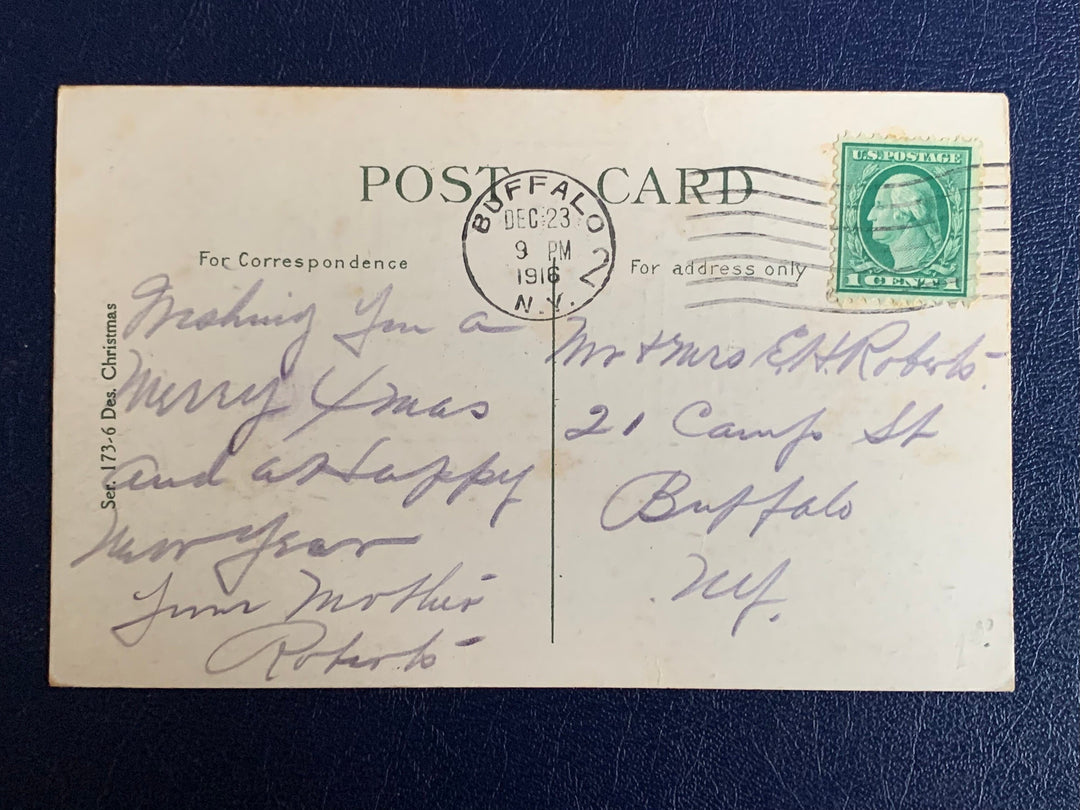 POST CARD
BUFFALO 2
DEC 23
9 PM
1916
N.Y.
U.S. POSTAGE
1 CENT 1
For Correspondence
For address only
Ser. 173-6 Des. Christmas
Wishing You a
Merry Xmas
and a Happy
New Year
from Mother
Roberts
Mr & Mrs E. H. Roberts.
21 Camp St
Buffalo
NY.